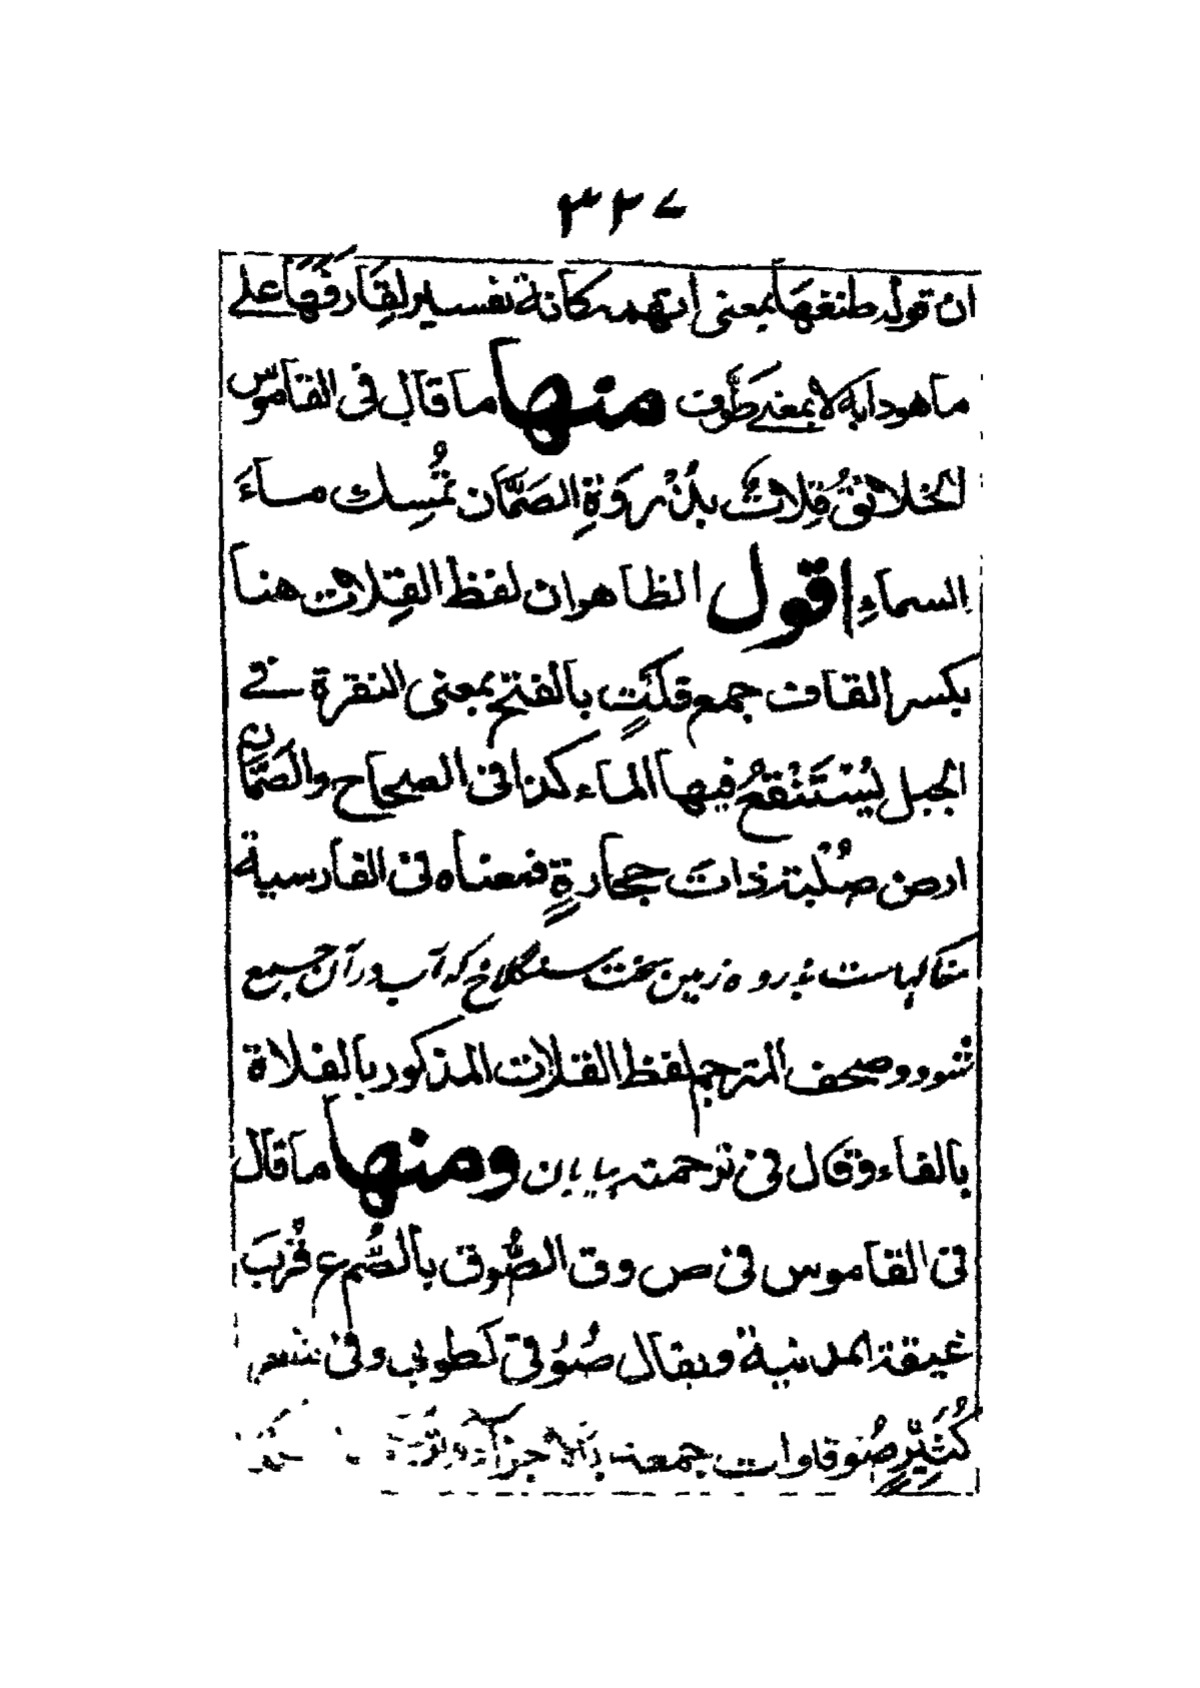 ٣٢٧
ان قوله طنفها بمعنى اتهمه كانه تفسير لقارفها على
ما هو دابه لا بمعنى طوف منها ما قال فى القاموس
الخلائقُ قِلاتٌ بذِرْوَةِ الصَمَّان تُمْسِك ماءَ
السماءِ اقول الظاهر ان لفظ القِلات هنا
بكسر القاف جمع قَلْتٍ بالفتح بمعنى النقرة فے
الجبل يَسْتَنْقِعُ فيها الماء كذا فى الصحاح والصَّمّان
ارض صُلْبة ذات حجارةٍ فمعناه فى الفارسية
مغاکهاست بذروه زمین سخت سنگلاخ که آب در آن جمع
شود وصحف المترجم لفظ القلات المذكور بالفلاة
بالفاء وقال فى ترجمته بیابان ومنها ما قال
فى القاموس فى ص وق الصُّوق بالضم ع قُرْبَ
غيقة المدنية ويقال صُوُقى كطوبى وفى شعر
كُثَيِّرٍ صُوقاوات جمعه